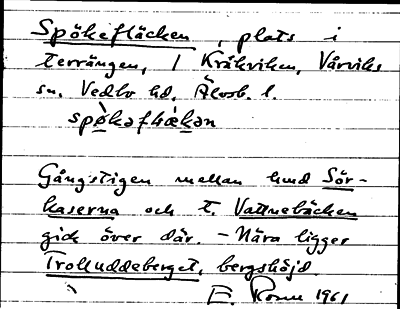 Spökefläcken, plats i
terrängen, / Kråkviken, Vårviks
sn. Vedbo hd, Älvsb. l.
spø̀kəflæ̀kən
Gångstigen mellan hmd Sör-
kaserna och t. Vattnebäcken
gick över där. - Nära ligger
Trolluddeberget, bergshöjd.
E. Rosm 1961